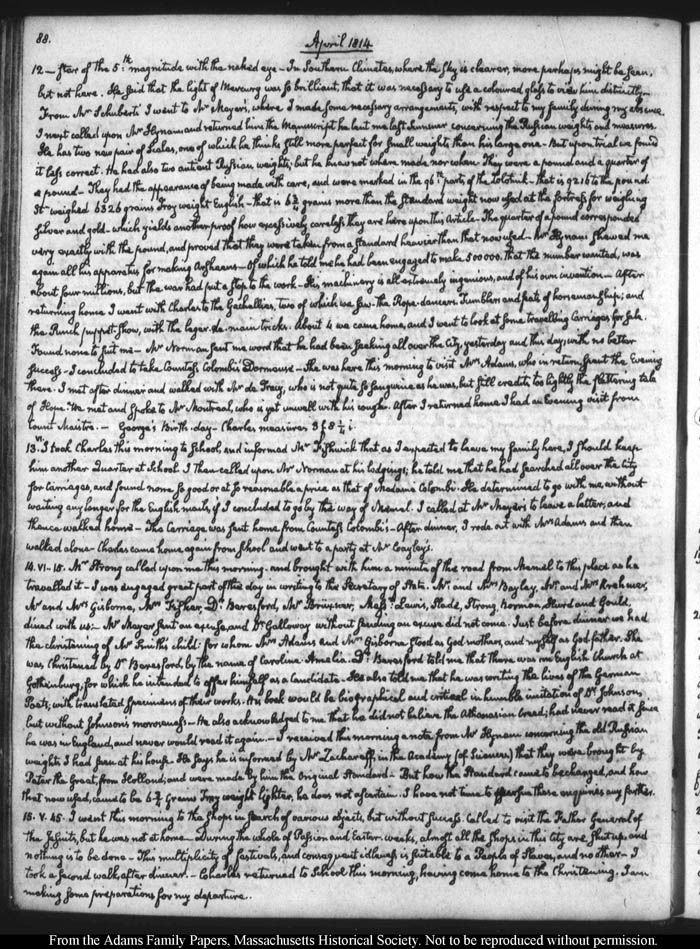 88.
April 1814
12 — star of the 5th magnitude with the naked eye — In Southern Climates, where the sky is clearer, more perhaps might be seen,
but not here. He said that the light of Mercury was so brilliant, that it was necessary to use a coloured glass to view him distinctly —
From Mr Schubert's I went to Mr Meyer's, where I made some necessary arrangements, with respect to my family during my absence.
I next called upon Mr Hynam and returned him the Manuscript he lent me last Summer concerning the Russian weights and measures.
He has two new pair of Scales, one of which he thinks still more perfect for small weights than his large one — But upon trial we found
it less correct. He had also two antient Russian weights; but he knew not where made nor when. They were a pound and a quarter of
a pound — They had the appearance of being made with care, and were marked in the 96th parts of the Zolotnik — that is 9216 to the pound
It weighed 6326 grains Troy weight English — that is 6¾ grains more than the standard weight now used at the fortress for weighing
silver and gold — which yields another proof how excessively careless they are here upon this Article. The quarter of a pound corresponded
very exactly with the pound, and proved that they were taken from a standard heavier than that now used — Mr Hynam shewed me
again all his apparatus for making Arsheens — Of which he told me he had been engaged to make 500000. that the number wanted, was
about four millions, but the war had put a stop to the work — His machinery is all extremely ingenious, and of his own invention — After
returning home I went with Charles to the Gachallies, two of which we saw — the Rope-dancers Tumblers and feats of horsemanship; and
the Punch puppet-show, with the leger-de-main tricks. About 4 we came home, and I went to look at some travelling Carriages for sale.
Found none to suit me — Mr Norman sent me word that he had been seeking all over the City, yesterday and this day, with no better
success — I concluded to take Countess Colombi's Dormeuse — She was here this morning to visit Mrs Adams, who in return spent the Evening
there. I met after dinner and walked with Mr de Bray, who is not quite so sanguine as he was, but still credits too lightly the flattering tale
of Hope. We met and spoke to Mr Montreal, who is yet unwell with his cough. After I returned home I had an Evening visit from
Count Maistre. — George's Birth-day — Charles measures 3 f 8¼ i.
13. VI. I took Charles this morning to School, and informed Mr Fishwick that as I expected to leave my family here, I should keep
him another Quarter at School. I then called upon Mr Norman at his lodgings; he told me that he had searched all over the City
for Carriages, and found none so good or at so reasonable a price as that of Madame Colombi. He determined to go with me, without
waiting any longer for the English mails, if I concluded to go by the way of Memel. I called at Mr Meyer's to leave a letter, and
thence walked home — The Carriage was sent home from Countess Colombi's — After dinner, I rode out with Mrs Adams and then
walked alone — Charles came home again from School and went to a party at Mr Cayley's.
14. VI-15. Mr Strong called upon me this morning and brought with him a minute of the road from Memel to this place as he
travelled it — I was engaged great part of the day in writing to the Secretary of State. Mr and Mrs Bayley, Mr and Mrs Krehmer,
Mr and Mrs Gisborne, Mrs Fisher, Dr Beresford, Mr Brunner, Messrs Lewis, Slade, Strong, Norman, Hurd and Gould,
dined with us. Mr Meyer sent an excuse, and Dr Galloway without sending an excuse did not come. Just before dinner we had
the christening of Mr Smith's child: for whom Mrs Adams and Mrs Gisborne stood as God mothers, and myself as God father. She
was Christened by Dr Beresford, by the name of Caroline Amelia. Dr Beresford told me that there was an English Church at
Gothenburg, for which he intended to offer himself as a candidate. He also told me that he was writing the lives of the German
Poets; with translated specimens of their works. His book would be biographical and critical in humble imitation of Dr Johnson,
but without Johnson's moroseness — He also acknowledged to me that he did not believe the Athanasian Creed; had never read it since
he was in England, and never would read it again. — I received this morning a note from Mr Hynam concerning the old Russian
weights I had seen at his house. He says he is informed by Mr Zacharoff, in the Academy (of Sciences) that they were brought by
Peter the Great, from Holland; and were made by him the original standard. But how the standard came to be changed, and how
that now used, came to be 6¾ Grains Troy weight lighter, he does not ascertain. I have not time to pursue these enquiries any further.
15. V. 45. I went this morning to the shops in search of various objects, but without success. Called to visit the Father General of
the Jesuits, but he was not at home — During the whole of Passion and Easter-weeks, almost all the shops in this City are shut up, and
nothing is to be done — This multiplicity of festivals, and consequent idleness is suitable to a People of Slaves, and no other — I
took a second walk, after dinner. — Charles returned to School this morning, having come home to the Christening. I am
making some preparations for my departure.
From the Adams Family Papers, Massachusetts Historical Society. Not to be reproduced without permission.